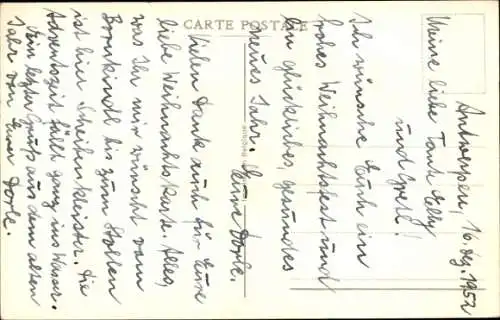 CARTE POSTALE
Antwerpen, 16. Dez. 1952
Meine liebe Tante Elly
und Gretl!
Ich wünsche Euch ein
frohes Weihnachtsfest und
ein glückliches, gesundes
neues Jahr. Eure Dorle.
Vielen Dank auch für Eure
liebe Weihnachtskarte. Alles,
was Ihr mir wünscht vom
bis zum Stollen
ist hier Scheibenkleister. Die
Adventszeit fällt ganz ins Wasser.
Ein letzter Gruß aus dem alten
Jahr von Eurer Dorle.